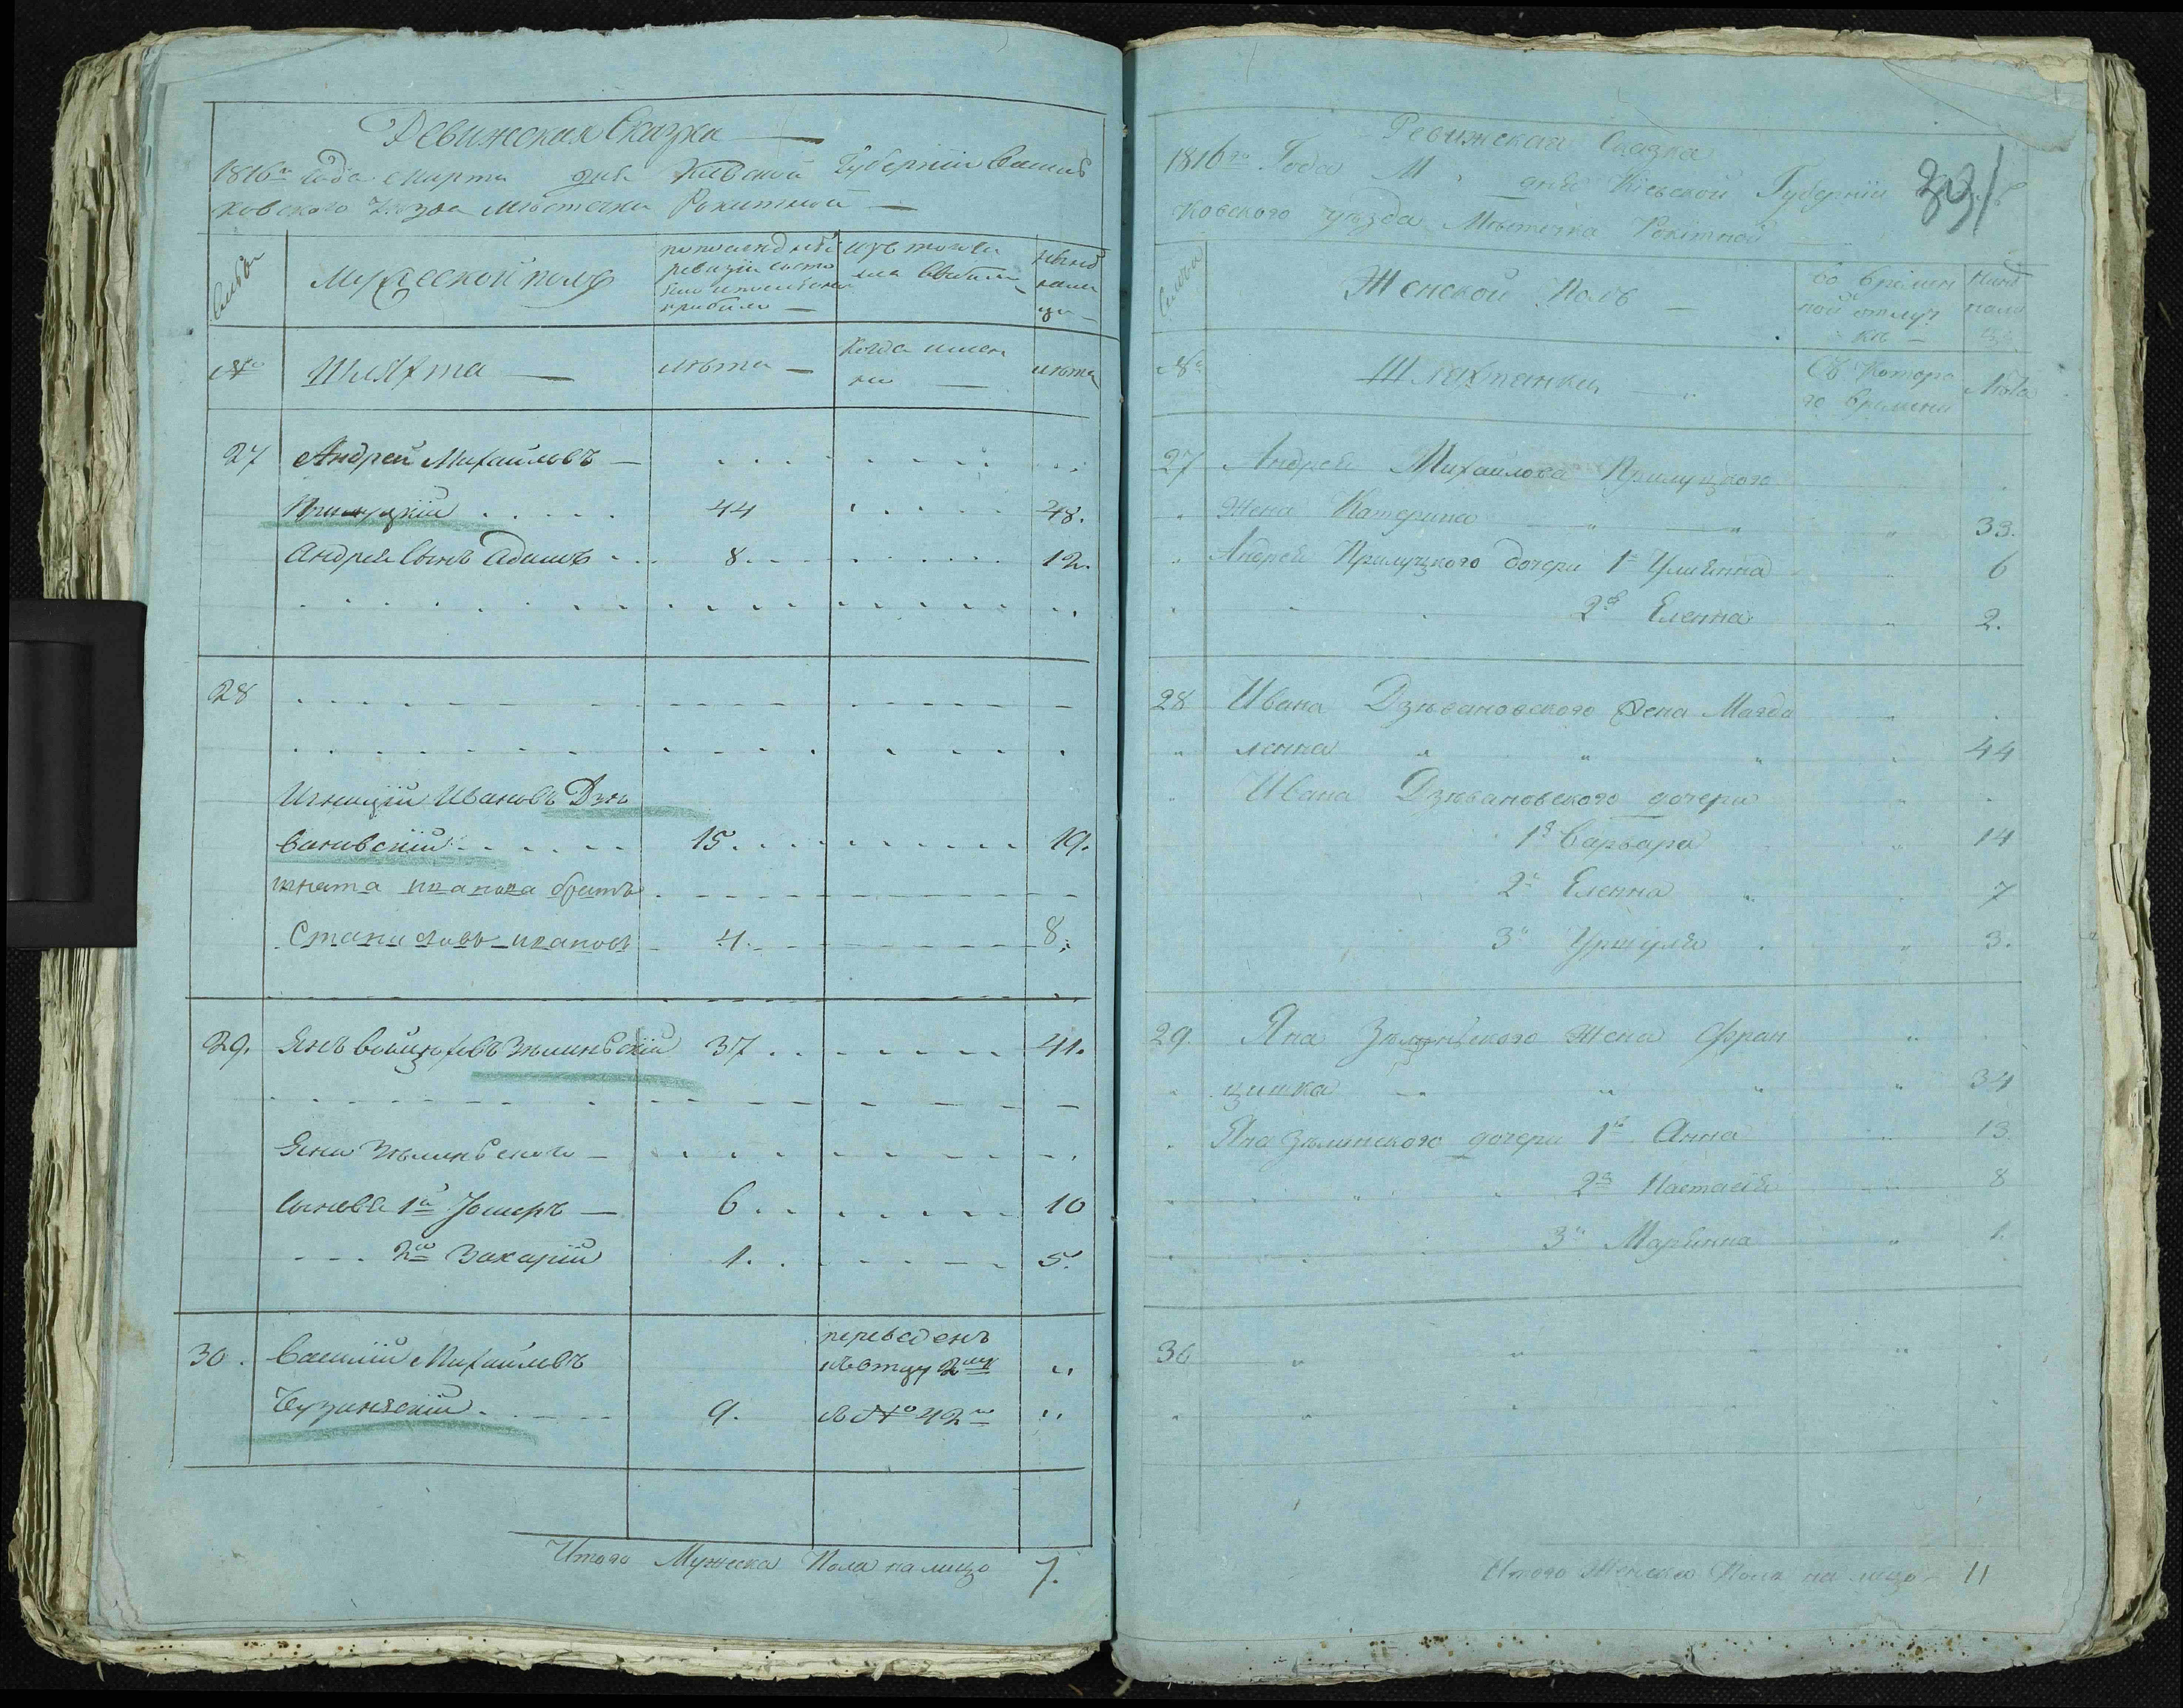 Ревижская Сказка
1816го года Марта дня Киевской Губернiи Василь
ковского уезда Местечка Рокитной
Семьи
Мужеской полъ
по последней
ревизiи состо
яло и после оной
прибыло
изъ того чи
сла выбыло
ныне
на ли
цо
№о
Шляхта
лета
когда имен
но
лета
27 Андрей Михайловъ
Прилуцкiй 44 48.
Андрея сынъ Адамъ 8. 12.
28
Игнацiй Ивановъ Дзѣ
вановскiй 15. 19.
игната иванова братъ
Станиславъ ивановъ 4. 8.
29. Янъ войцеховъ Зѣлинскiй 37 41.
Яна Зѣлинского
сыновья 1й Юзефъ 6 10
2й Захарiй 1. 5.
30. Василiй Михайловъ
переведенъ
къ отцу ему
Бузинскiй 9. в №о 42й
Итого Мужеска Пола на лицо 7.
Ревижская Сказка
331
1816го Года М дня Кiевской Губернiи
ковского уѣзда Мѣстечка Рокитной
Семьи
Женской Полъ
во времен
ной отлуч
ке
Ныне
на ли
цо
№о
Шляхтянки
Съ Которо
го времени
Лѣта
27 Андрея Михайлова Прилуцкого
Жена Катерина 33.
Андрея Прилуцкого дочери 1я Улияння 6
2я Еленна 2.
28 Ивана Дзѣвановского Жена Магда
ленна 44
Ивана Дзѣвановского дочери
1я Варвара 14
2я Еленна 7
3я Уршуля 3.
29. Яна Зѣлинского Жена Фран
цишка 34
Яна Зѣлинского дочери 1я Анна 13
2я Настасiя 8
3я Марянна 1.
30
Итого Женска Пола на лицо 11